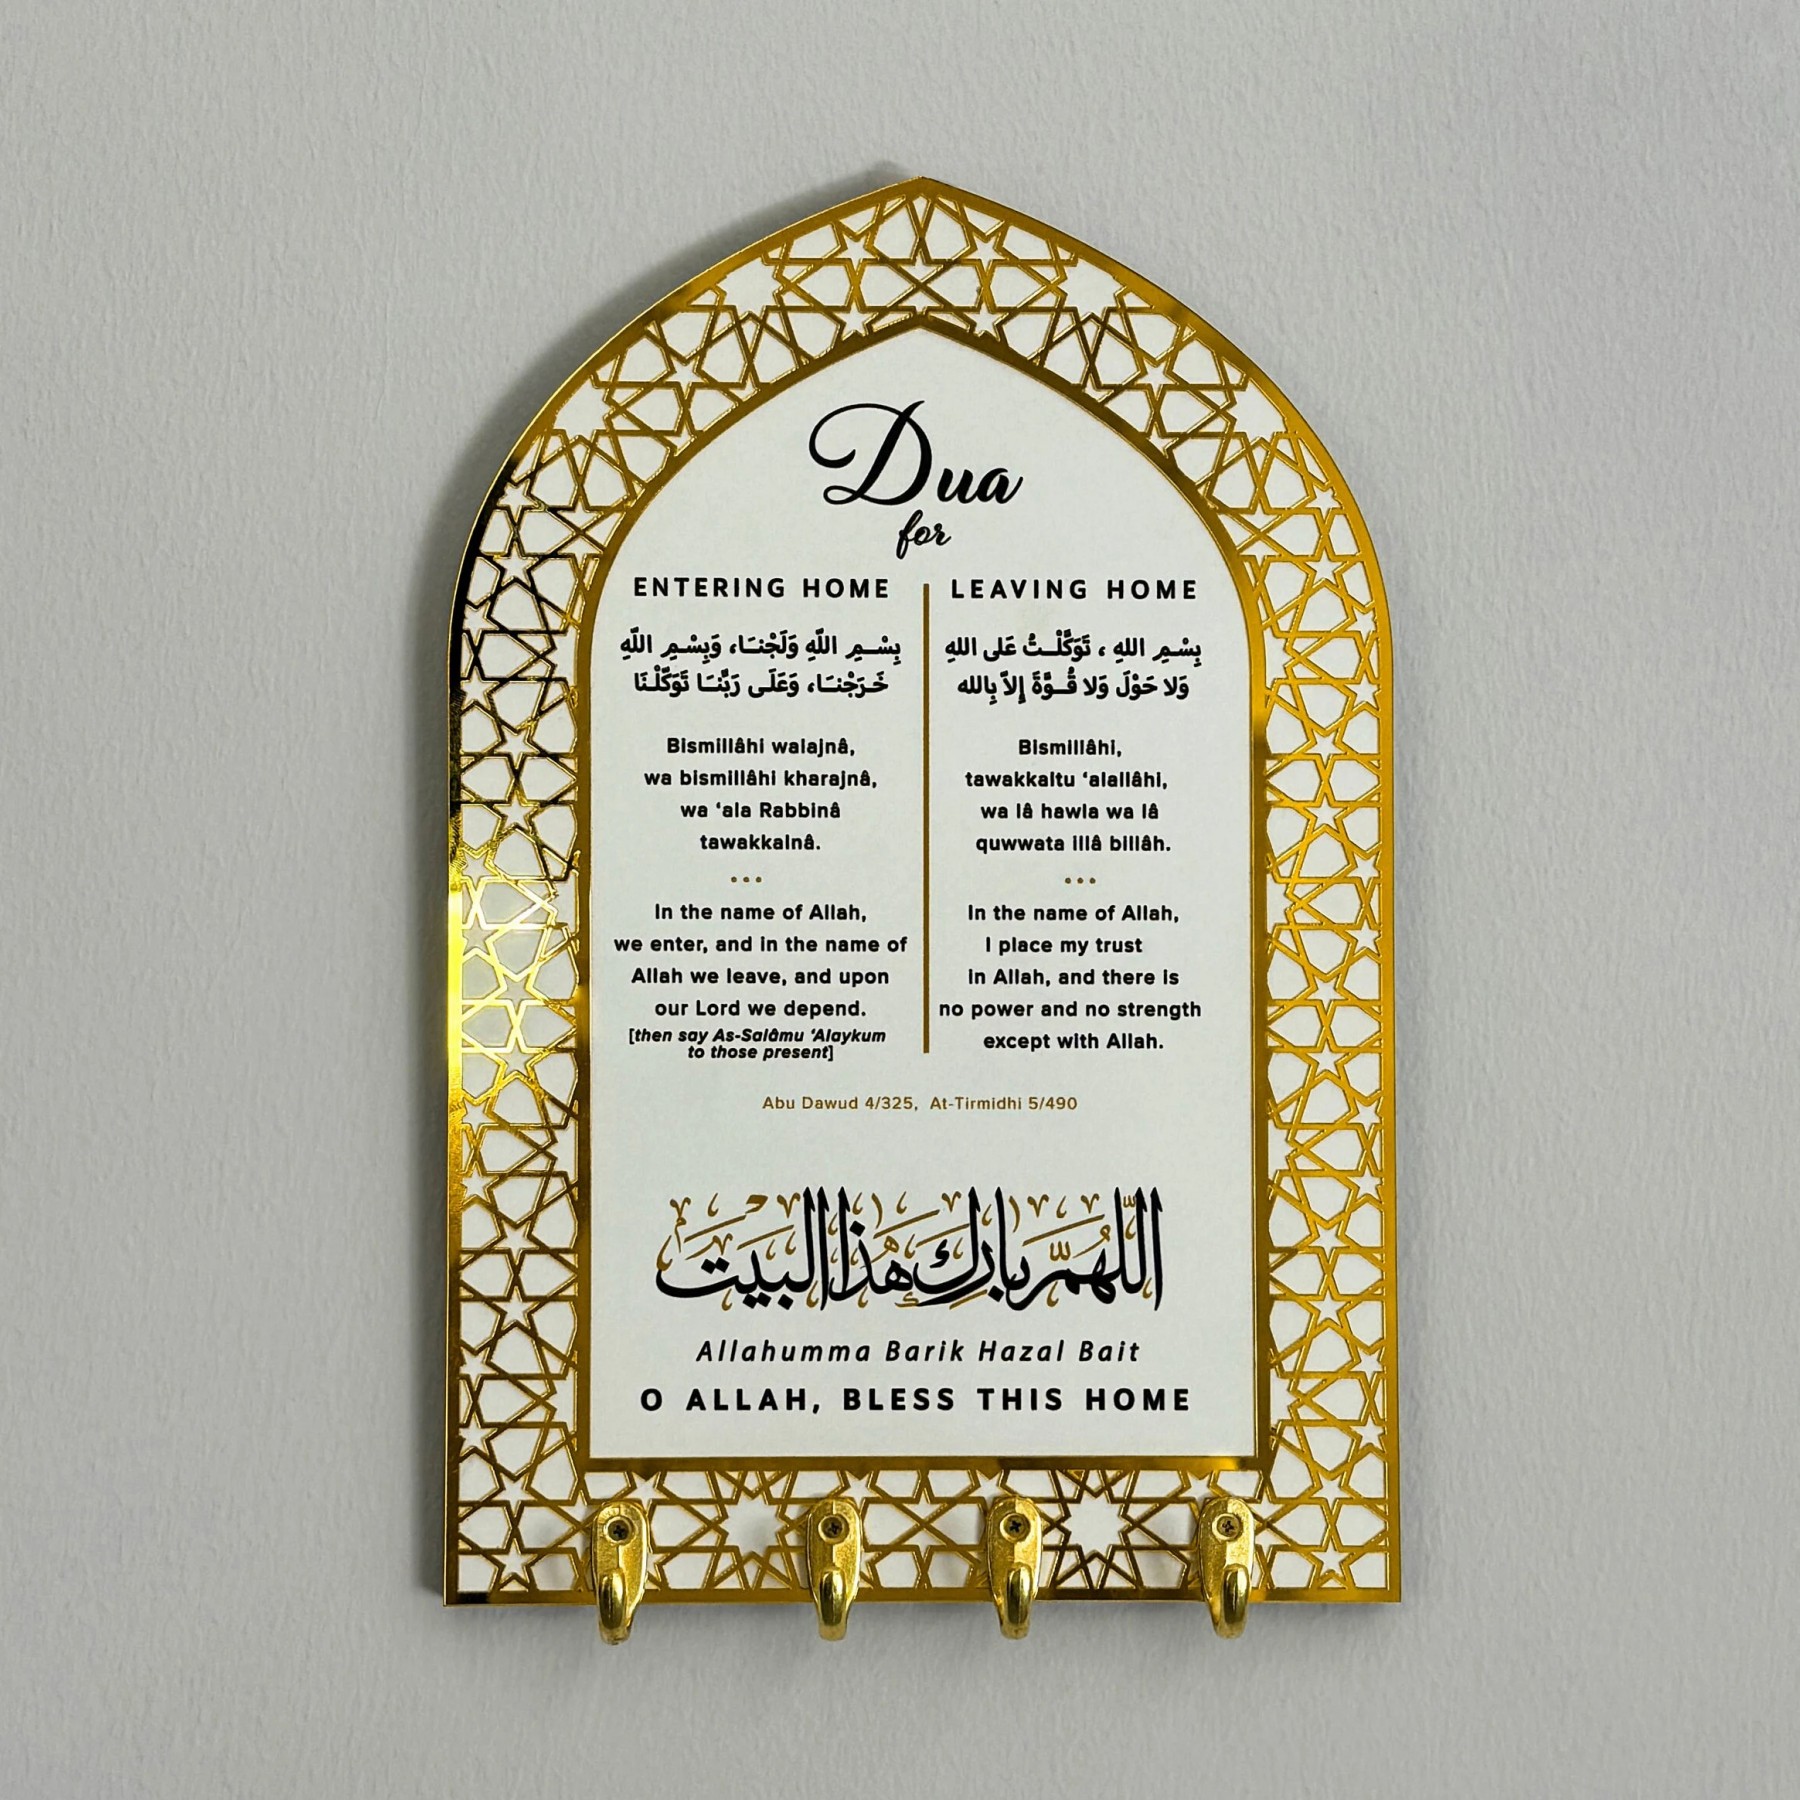 Dua
for
ENTERING HOME
بِسْـــمِ اللَّهِ وَلَجْنـَـا، وَبِسْـمِ اللَّهِ
خَـرَجْنـَـا، وَعَلَـى رَبِّنـَـا تَوَكَّلْـنَا
Bismillâhi walajnâ,
wa bismillâhi kharajnâ,
wa ‘ala Rabbinâ
tawakkalnâ.
In the name of Allah,
we enter, and in the name of
Allah we leave, and upon
our Lord we depend.
[then say As-Salâmu ‘Alaykum
to those present]
LEAVING HOME
بِسْـمِ اللهِ ، تَوَكَّلْــتُ عَلى اللهِ
وَلا حَوْلَ وَلا قُــوَّةَ إِلاّ بِالله
Bismillâhi,
tawakkaltu ‘alallâhi,
wa lâ hawla wa lâ
quwwata illâ billâh.
In the name of Allah,
I place my trust
in Allah, and there is
no power and no strength
except with Allah.
Abu Dawud 4/325, At-Tirmidhi 5/490
اللّهُمَّ بَارِكْ هٰذَا الْبَيْتَ
Allahumma Barik Hazal Bait
O ALLAH, BLESS THIS HOME